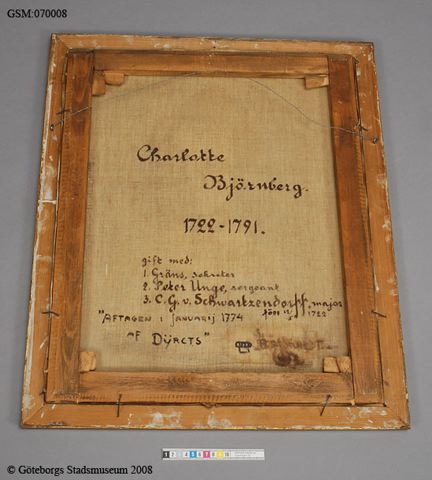 GSM:070008
Charlotte
Björnberg.
1722-1791.
gift med:
1. Gräns, sekreter
2. Peter Unge, sergeant
3. C. G. v. Schwartzendorff, major
född 1722
"AFTAGEN I JANUARIJ 1774
AF DŸRCTS"
© Göteborgs Stadsmuseum 2008